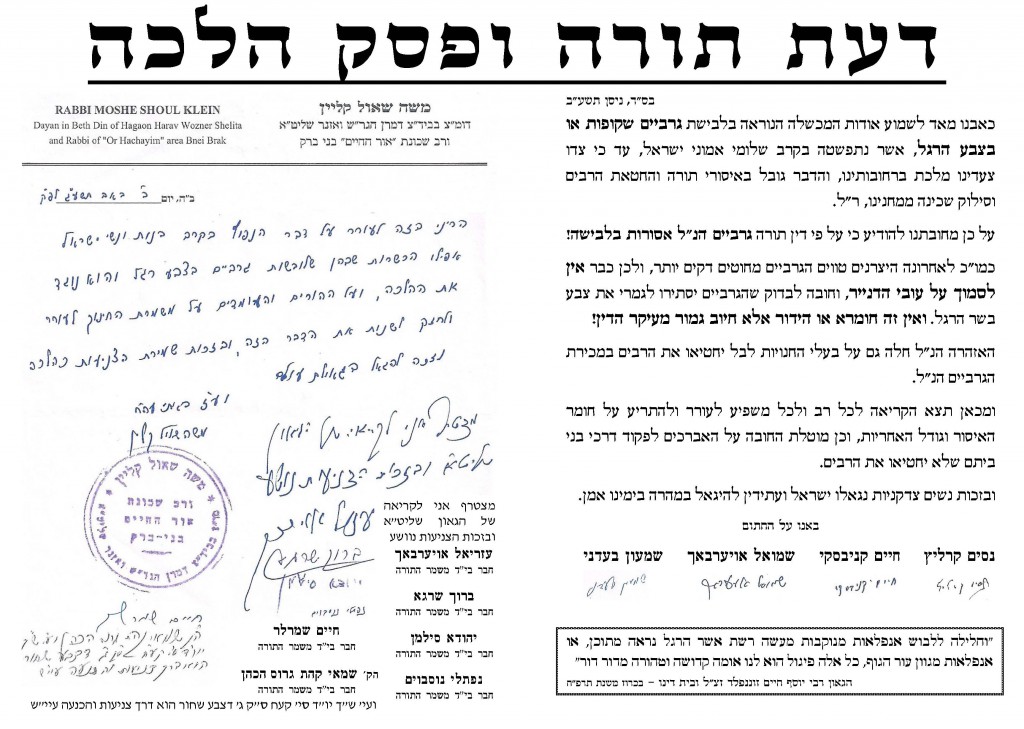 דעת תורה ופסק הלכה
בס"ד, ניסן תשע"ב
כאבנו מאד לשמוע אודות המכשלה הנוראה בלבישת גרביים שקופות או
בצבע הרגל, אשר נתפשטה בקרב שלומי אמוני ישראל, עד כי צדו
צעדינו מלכת ברחובותינו, והדבר גובל באיסורי תורה והחטאת הרבים
וסילוק שכינה ממחנינו, ר"ל.
על כן מחובתנו להודיע כי על פי דין תורה גרביים הנ"ל אסורות בלבישה!
כמו"כ לאחרונה היצרנים טווים הגרביים מחוטים דקים יותר, ולכן כבר אין
לסמוך על עובי הדנייר, וחובה לבדוק שהגרביים יסתירו לגמרי את צבע
בשר הרגל. ואין זה חומרא או הידור אלא חיוב גמור מעיקר הדין!
האזהרה הנ"ל חלה גם על בעלי החנויות לבל יחטיאו את הרבים במכירת
הגרביים הנ"ל.
ומכאן תצא הקריאה לכל רב ולכל משפיע לעורר ולהתריע על חומר
האיסור וגודל האחריות, וכן מוטלת החובה על האברכים לפקוד דרכי בני
ביתם שלא יחטיאו את הרבים.
ובזכות נשים צדקניות נגאלו ישראל ועתידין להיגאל במהרה בימינו אמן.
באנו על החתום
נסים קרליץ חיים קניבסקי שמואל אויערבאך שמעון בעדני
"וחלילה ללבוש אנפלאות מנוקבות מעשה רשת אשר הרגל נראה מתוכן, או
אנפלאות מגוון עור הגוף, כל אלה פיגול הוא לנו אומה קדושה וטהורה מדור דור"
הגאון רבי יוסף חיים זוננפלד זצ"ל ובית דינו – בכרוז משנת תרפ"ח
משה שאול קליין
דומ"צ בביד"צ דמרן הגר"ש ואזנר שליט"א
ורב שכונת "אור החיים" בני ברק
RABBI MOSHE SHOUL KLEIN
Dayan in Beth Din of Hagaon Harav Wozner Shelita
and Rabbi of "Or Hachayim" area Bnei Brak
ב"ה, יום כ' באב תשע"ג לפ"ק
הריני בזה לעורר על דבר הנפוץ בקרב בנות ונשי ישראל
אפילו הכשרות שבהן שלובשות גרביים בצבע רגל והוא נוגד
את ההלכה, ועל ההורים והעומדים על משמרת החינוך לעורר
ולחנך לשנות את הדבר הזה, ובזכות שמירת הצניעות כהלכה
נזכה להגאל בגאולת עולם
משה שאול קליין
משה שאול קליין
ורב שכונת
אור החיים
בני-ברק
מו"צ בביד"צ דמרן הגר"ש ואזנר שליט"א
מצטרף אני לקריאה
של הגאון שליט"א
ובזכות הצניעות נוושע
עזריאל אויערבאך
חבר בי"ד משמר התורה
ברוך שרגא
חבר בי"ד משמר התורה
יהודא סילמן
חבר בי"ד משמר התורה
נפתלי נוסבוים
חבר בי"ד משמר התורה
חיים שמרלר
חבר בי"ד משמר התורה
הק' שמאי קהת גרוס הכהן
חבר בי"ד משמר התורה
ועיי ש"ך יו"ד סי' קעח ס"ק ג' דצבע שחור הוא דרך צניעות והכנעה עיי"ש